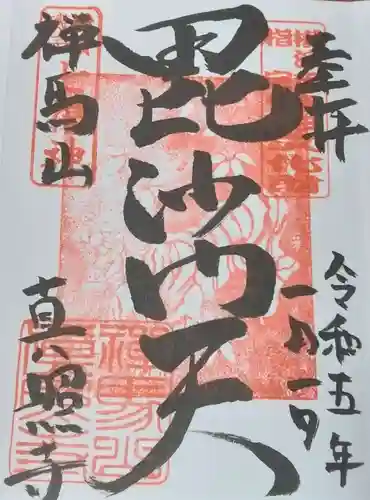 奉拝
令和五年
一月一日
毘沙門天
禅馬山
真照寺